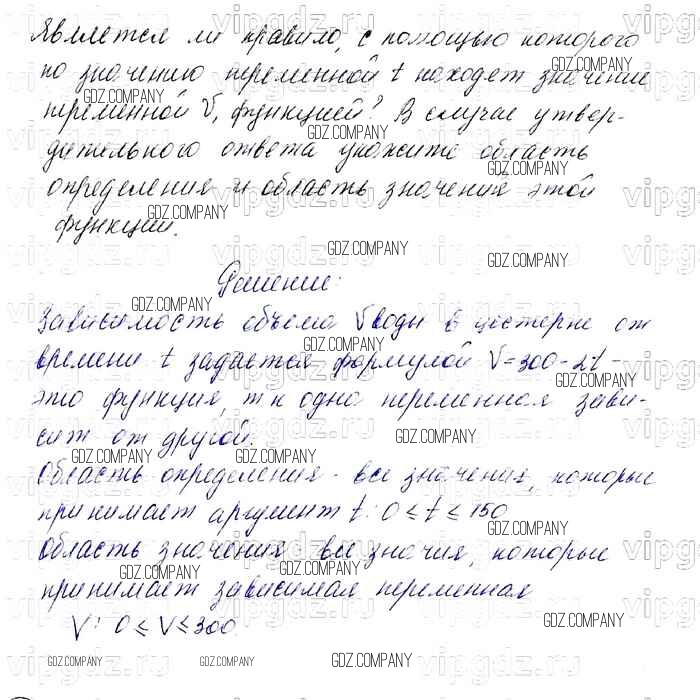 Является ли правило, с помощью которого
по значению переменной t находят значение
переменной V, функцией? В случае утвер-
дительного ответа укажите область
определения и область значения этой
функции.
Решение:
Зависимость объёма V воды в цистерне от
времени t задаётся формулой V=300-2t -
это функция, т к одна переменная зави-
сит от другой.
Область определения - все значения, которые
принимает аргумент t: 0 ≤ t ≤ 150
Область значения все значия, которые
принимает зависимая переменная
V: 0 ≤ V ≤ 300
GDZ.COMPANY
vipgdz.ru